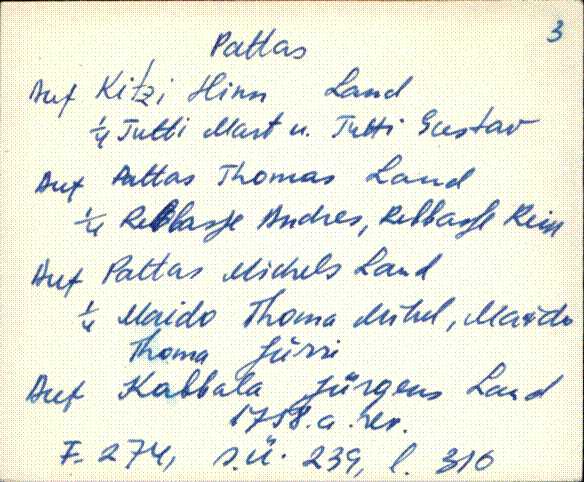 3
Pattas
Auf Kitzi Hinn Land
1/4 Tutti Mart u. Tutti Gustav
Auf Pattas Thomas Land
1/4 Rebbasse Andres, Rebbasse Rein
Auf Pattas Michels Land
1/4 Maido Thoma Mihel, Maido
Thoma Jürri
Auf Kabbala Jürgens Land
1758. a. rev.
F. 274, s.ü. 239, l. 310